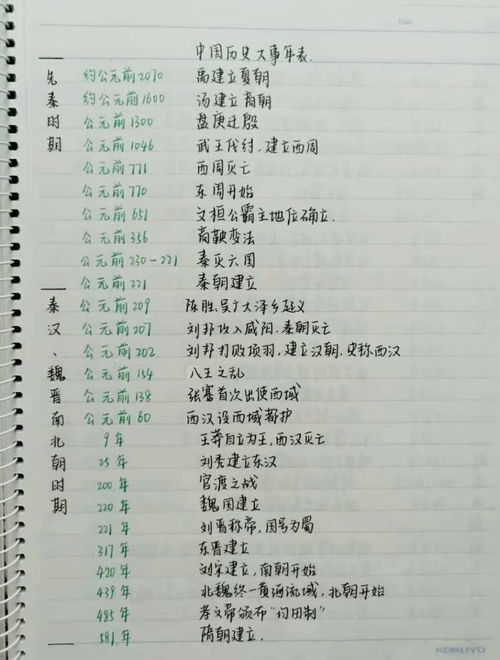 中国历史大事年表.
先 约公元前2070 禹建立夏朝
秦 约公元前1600 汤建立商朝
时 公元前1300 盘庚迁殷
期 公元前1046 武王伐纣,建立西周
公元前771 西周灭亡
公元前770 东周开始
公元前651 文桓公霸主地位确立.
公元前356 商鞅变法
公元前230-221 秦灭六国
公元前221 秦朝建立
秦 公元前209 陈胜、吴广大泽乡起义
汉 公元前207 刘邦攻入咸阳.秦朝灭亡
、 公元前202 刘邦打败项羽,建立汉朝.史称西汉
魏 公元前154 八王之乱
晋 公元前138 张骞首次出使西域
南 公元前60 西汉设西域都护
北 9年 王莽自立为王,西汉灭亡
朝 25年 刘秀建立东汉
时 200年 官渡之战
期 220年 魏国建立
221年 刘晋称帝,国号为蜀
317年 东晋建立
420年 刘宋建立,南朝开始
439年 北魏终一黄河流域,北朝开始
485年 孝文帝颁布"均田制"
581年 隋朝建立.